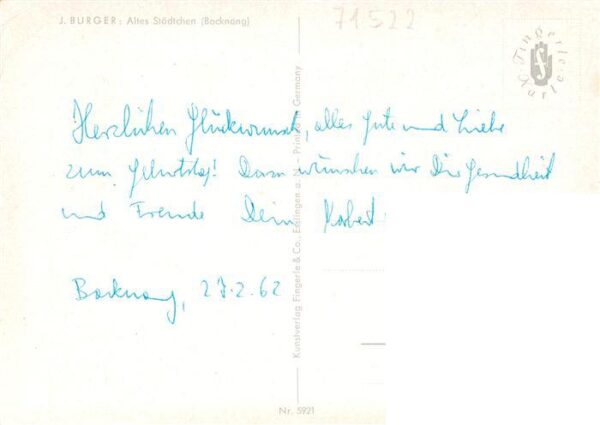 J. BURGER: Altes Städtchen (Backnang)
71522
Fingerle-Karte
Herzlichen Glückwunsch, alles Gute und Liebe
zum Geburtstag! Dazu wünschen wir Dir Gesundheit
und Freude Dein Norbert
Backnang, 27.2.62
Kunstverlag Fingerle & Co., Esslingen a. N. – Printed in Germany
Nr. 5921